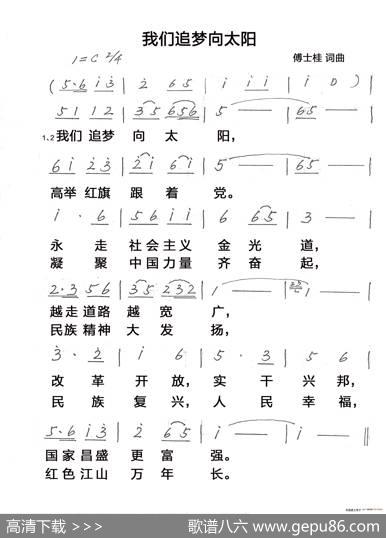 我们追梦向太阳
1=C 2/4
傅士桂 词曲
(5·6 i3 | 2 65 | i i i | i 0)
51 12 | 35 656 | 5 — | 65 — |
1.2我们 追梦 向 太 阳,
6i 23 | 2i 6i | 5 — | 65 — |
高举 红旗 跟 着 党。
i · 6 | 56 ii | 6 65 | 3 — |
永 走 社会主义 金 光 道,
凝 聚 中国力量 齐 奋 起,
2·3 56 | 35 232 | 1 — | 1 — |
越走道路 越 宽 广,
民族 精神 大 发 扬,
3 · 2 | i 6 | 5 · 3 | 5 6 |
改 革 开 放, 实 干 兴 邦,
民 族 复 兴, 人 民 幸 福,
5·6 i3 | 2 65 | i — | i — |
国家 昌盛 更 富 强。
红色 江山 万 年 长。
高清下载 >>>
歌谱八六 www.gepu86.com